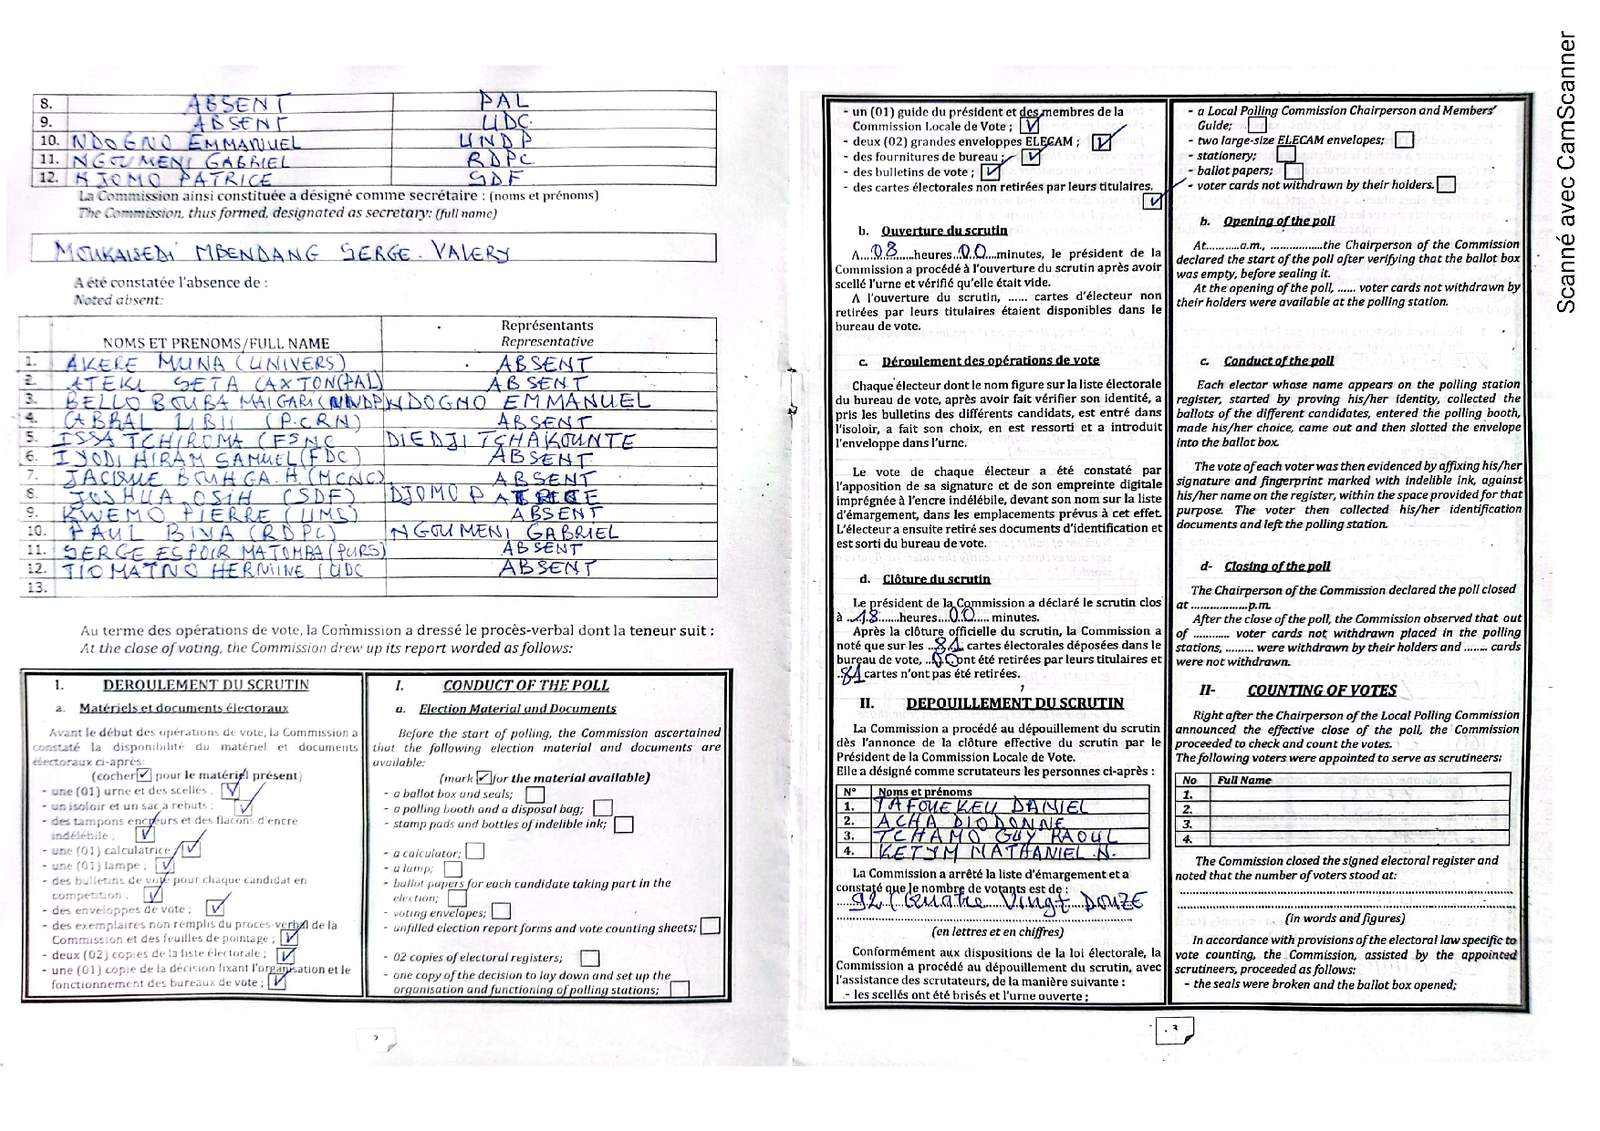 8. ABSENT PAL
9. ABSENT UDC
10. NDOGNO EMMANUEL UNDP
11. NGOUMENI GABRIEL RDPC
12. NJOMO PATRICE SDF
La Commission ainsi constituée a désigné comme secrétaire : (noms et prénoms)
The Commission, thus formed, designated as secretary: (full name)
MOUKAISEDI MBENDANG SERGE. VALERY
A été constatée l'absence de :
Noted absent:
NOMS ET PRENOMS/FULL NAME Représentants
Representative
1. AKERE MUNA (UNIVERS) ABSENT
2. ATEKI SETA CAXTON(PAL) ABSENT
3. BELLO BOUBA MAIGARI(UNDP) NDOGNO EMMANUEL
4. CABRAL LIBII (P.CRN) ABSENT
5. ISSA TCHIROMA (FSNC DIEDJI TCHAKOUNTE
6. IYODI HIRAM SAMUEL(FDC) ABSENT
7. JACQUE BOUHGA.H.(MCNC) ABSENT
8. JOSHUA OSIH (SDF) DJOMO PATRICE
9. KWEMO PIERRE (UMS) ABSENT
10. PAUL BIYA (RDPC) NGOUMENI GABRIEL
11. SERGE ESPOIR MATOMBA (PURS) ABSENT
12. TIOMATNO HERMINE (UDC ABSENT
13.
Au terme des opérations de vote, la Commission a dressé le procès-verbal dont la teneur suit :
At the close of voting, the Commission drew up its report worded as follows:
I. DEROULEMENT DU SCRUTIN
a. Matériels et documents électoraux
Avant le début des opérations de vote, la Commission a
constaté la disponibilité du matériel et documents
électoraux ci-après:
(cocher ✓ pour le matériel présent)
- une (01) urne et des scellés ; ✓
- un isoloir et un sac à rebuts ; ✓
- des tampons encreurs et des flacons d'encre
indélébile ; ✓
- une (01) calculatrice ✓
- une (01) lampe ; ✓
- des bulletins de vote pour chaque candidat en
compétition ; ✓
- des enveloppes de vote ; ✓
- des exemplaires non remplis du procès verbal de la
Commission et des feuilles de pointage ; ✓
- deux (02) copies de la liste électorale ; ✓
- une (01) copie de la décision fixant l'organisation et le
fonctionnement des bureaux de vote ; ✓
I. CONDUCT OF THE POLL
a. Election Material and Documents
Before the start of polling, the Commission ascertained
that the following election material and documents are
available:
(mark ✓ for the material available)
- a ballot box and seals;
- a polling booth and a disposal bag;
- stamp pads and bottles of indelible ink;
- a calculator;
- a lamp;
- ballot papers for each candidate taking part in the
election;
- voting envelopes;
- unfilled election report forms and vote counting sheets;
- 02 copies of electoral registers;
- one copy of the decision to lay down and set up the
organisation and functioning of polling stations;
2
- un (01) guide du président et des membres de la
Commission Locale de Vote ; ✓
- deux (02) grandes enveloppes ELECAM ; ✓
- des fournitures de bureau ; ✓
- des bulletins de vote ; ✓
- des cartes électorales non retirées par leurs titulaires.
✓
b. Ouverture du scrutin
A...08...heures...00...minutes, le président de la
Commission a procédé à l'ouverture du scrutin après avoir
scellé l'urne et vérifié qu'elle était vide.
A l'ouverture du scrutin, ...... cartes d'électeur non
retirées par leurs titulaires étaient disponibles dans le
bureau de vote.
c. Déroulement des opérations de vote
Chaque électeur dont le nom figure sur la liste électorale
du bureau de vote, après avoir fait vérifier son identité, a
pris les bulletins des différents candidats, est entré dans
l'isoloir, a fait son choix, en est ressorti et a introduit
l'enveloppe dans l'urne.
Le vote de chaque électeur a été constaté par
l'apposition de sa signature et de son empreinte digitale
imprégnée à l'encre indélébile, devant son nom sur la liste
d'émargement, dans les emplacements prévus à cet effet.
L'électeur a ensuite retiré ses documents d'identification et
est sorti du bureau de vote.
d. Clôture du scrutin
Le président de la Commission a déclaré le scrutin clos
à ..18..heures...00... minutes.
Après la clôture officielle du scrutin, la Commission a
noté que sur les ..81.. cartes électorales déposées dans le
bureau de vote, ..00 ont été retirées par leurs titulaires et
.81 cartes n'ont pas été retirées.
II. DEPOUILLEMENT DU SCRUTIN
La Commission a procédé au dépouillement du scrutin
dès l'annonce de la clôture effective du scrutin par le
Président de la Commission Locale de Vote.
Elle a désigné comme scrutateurs les personnes ci-après :
N° Noms et prénoms
1. TAFOUEKEU DANIEL
2. ACHA DIODONNE
3. TCHAMO GUY RAOUL
4. KETYM NATHANIEL .N.
La Commission a arrêté la liste d'émargement et a
constaté que le nombre de votants est de :
92 ( Quatre Vingt DOUZE
(en lettres et en chiffres)
Conformément aux dispositions de la loi électorale, la
Commission a procédé au dépouillement du scrutin, avec
l'assistance des scrutateurs, de la manière suivante :
- les scellés ont été brisés et l'urne ouverte ;
- a Local Polling Commission Chairperson and Members'
Guide;
- two large-size ELECAM envelopes;
- stationery;
- ballot papers;
- voter cards not withdrawn by their holders.
b. Opening of the poll
At..........a.m., .................the Chairperson of the Commission
declared the start of the poll after verifying that the ballot box
was empty, before sealing it.
At the opening of the poll, ...... voter cards not withdrawn by
their holders were available at the polling station.
c. Conduct of the poll
Each elector whose name appears on the polling station
register, started by proving his/her identity, collected the
ballots of the different candidates, entered the polling booth,
made his/her choice, came out and then slotted the envelope
into the ballot box.
The vote of each voter was then evidenced by affixing his/her
signature and fingerprint marked with indelible ink, against
his/her name on the register, within the space provided for that
purpose. The voter then collected his/her identification
documents and left the polling station.
d- Closing of the poll
The Chairperson of the Commission declared the poll closed
at .................p.m.
After the close of the poll, the Commission observed that out
of ........... voter cards not withdrawn placed in the polling
stations, ......... were withdrawn by their holders and ....... cards
were not withdrawn.
II- COUNTING OF VOTES
Right after the Chairperson of the Local Polling Commission
announced the effective close of the poll, the Commission
proceeded to check and count the votes.
The following voters were appointed to serve as scrutineers:
No Full Name
1.
2.
3.
4.
The Commission closed the signed electoral register and
noted that the number of voters stood at:
(in words and figures)
In accordance with provisions of the electoral law specific to
vote counting, the Commission, assisted by the appointed
scrutineers, proceeded as follows:
- the seals were broken and the ballot box opened;
3
Scanné avec CamScanner